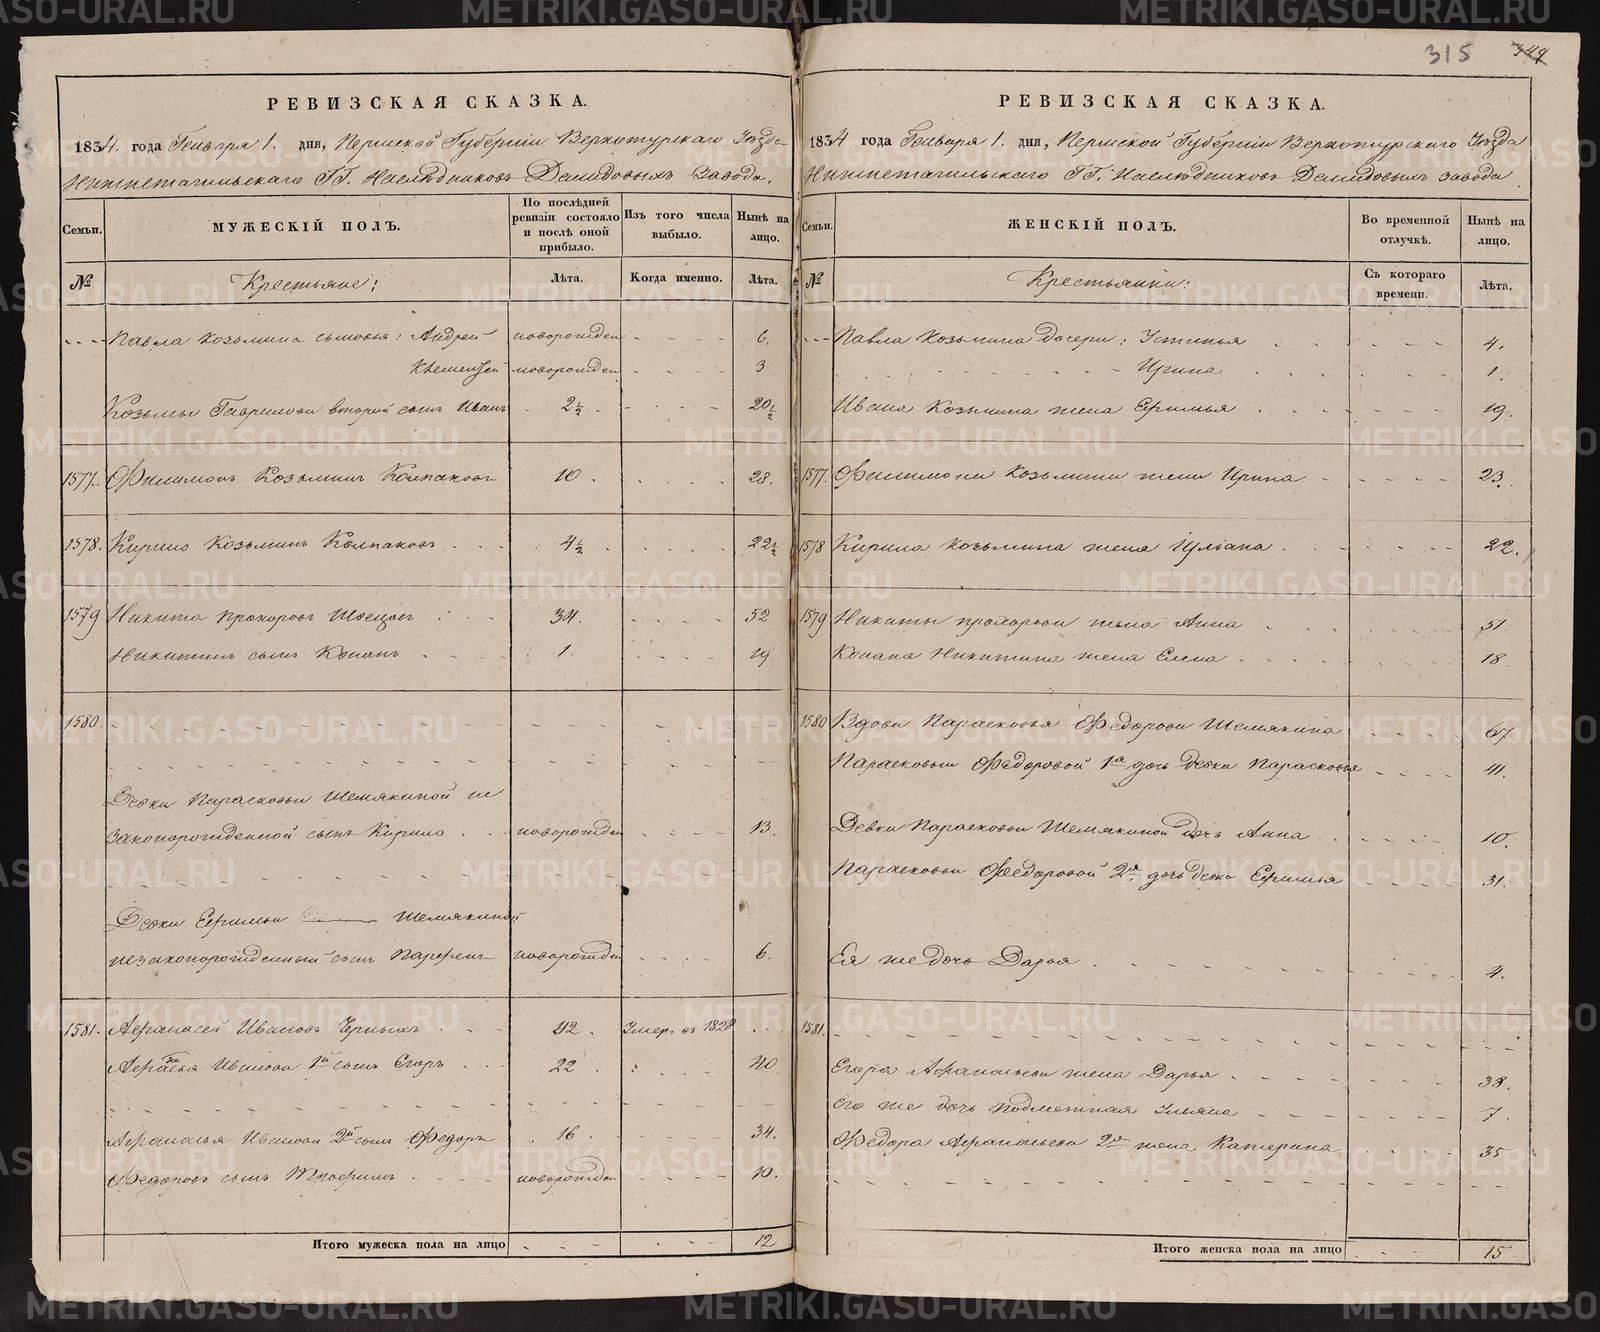 315 349
РЕВИЗСКАЯ СКАЗКА.
1834. года Генваря 1. дня, Пермской Губернiи Верхотурскаго Уѣзда
Нижнетагильскаго ГГ. Наслѣдниковъ Демидовыхъ Завода.
Семьи. МУЖЕСКIЙ ПОЛЪ. По послѣдней ревизiи состояло и послѣ оной прибыло. Изъ того числа выбыло. Нынѣ на лицо.
№ Крестьяне: Лѣта. Когда именно. Лѣта.
Павла Козьмина сыновья: Андрей новорожден 6.
Клементей новорожден 3
Козьмы Гаврилова второй сынъ Иванъ 2½ 20½
1577. Филимонъ Козьминъ Колпаковъ 10. 28.
1578. Кирило Козьминъ Колпаковъ 4½ 22½
1579 Никита Прохоровъ Швецовъ 34. 52.
Никитинъ сынъ Конанъ 1. 19
1580.
Девки Парасковьи Шемякиной не
законорожденной сынъ Кирило новорожден 13.
Девки Ефимьи Шемякиной
незаконорожденный сынъ Парфенъ новорожден 6.
1581. Афанасей Ивановъ Черныхъ 42. Умер. въ 1828
Афанасья Иванова 1й сынъ Егоръ 22 40
Афанасья Иванова 2й сынъ Федоръ 16 34.
Федоровъ сынъ Трофимъ новорожден 10.
Итого мужеска пола на лицо 12
РЕВИЗСКАЯ СКАЗКА.
1834 года Генваря 1. дня, Пермской Губернiи Верхотурскаго Уѣзда
Нижнетагильскаго ГГ. Наслѣдниковъ Демидовыхъ завода
Семьи. ЖЕНСКIЙ ПОЛЪ. Во временной отлучкѣ. Нынѣ на лицо.
№ Крестьянки: Съ котораго времени. Лѣта.
Павла Козьмина дочери: Устинья 4.
Ирина 1.
Ивана Козьмина жена Ефимья 19.
1577. Филимона Козьмина жена Ирина 23.
1578 Кирила Козьмина жена Ульяна 22.
1579 Никиты Прохорова жена Анна 51.
Конана Никитина жена Елена 18.
1580 Вдова Парасковья Федорова Шемякина 67
Парасковьи Федоровой 1я дочь девка Парасковья 41.
Девки Парасковьи Шемякиной дочь Анна 10.
Парасковьи Федоровой 2я дочь девка Ефимья 31.
Ея же дочь Дарья 4.
1581.
Егора Афанасьева жена Дарья 38.
Его же дочь подметная Ульяна 7.
Федора Афанасьева 2я жена Катерина 35
Итого женска пола на лицо 15
METRIKI.GASO-URAL.RU